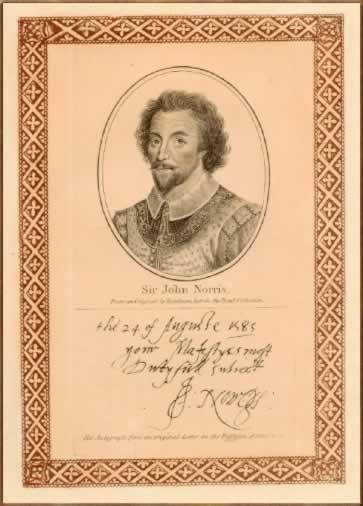 Sir John Norris.
From an Original by Zucchero, late in the
the 24 of Auguste 1585
your Maiestyes most
Dutyfull subiect
J. Noreys
His Autograph from an Original Letter in the